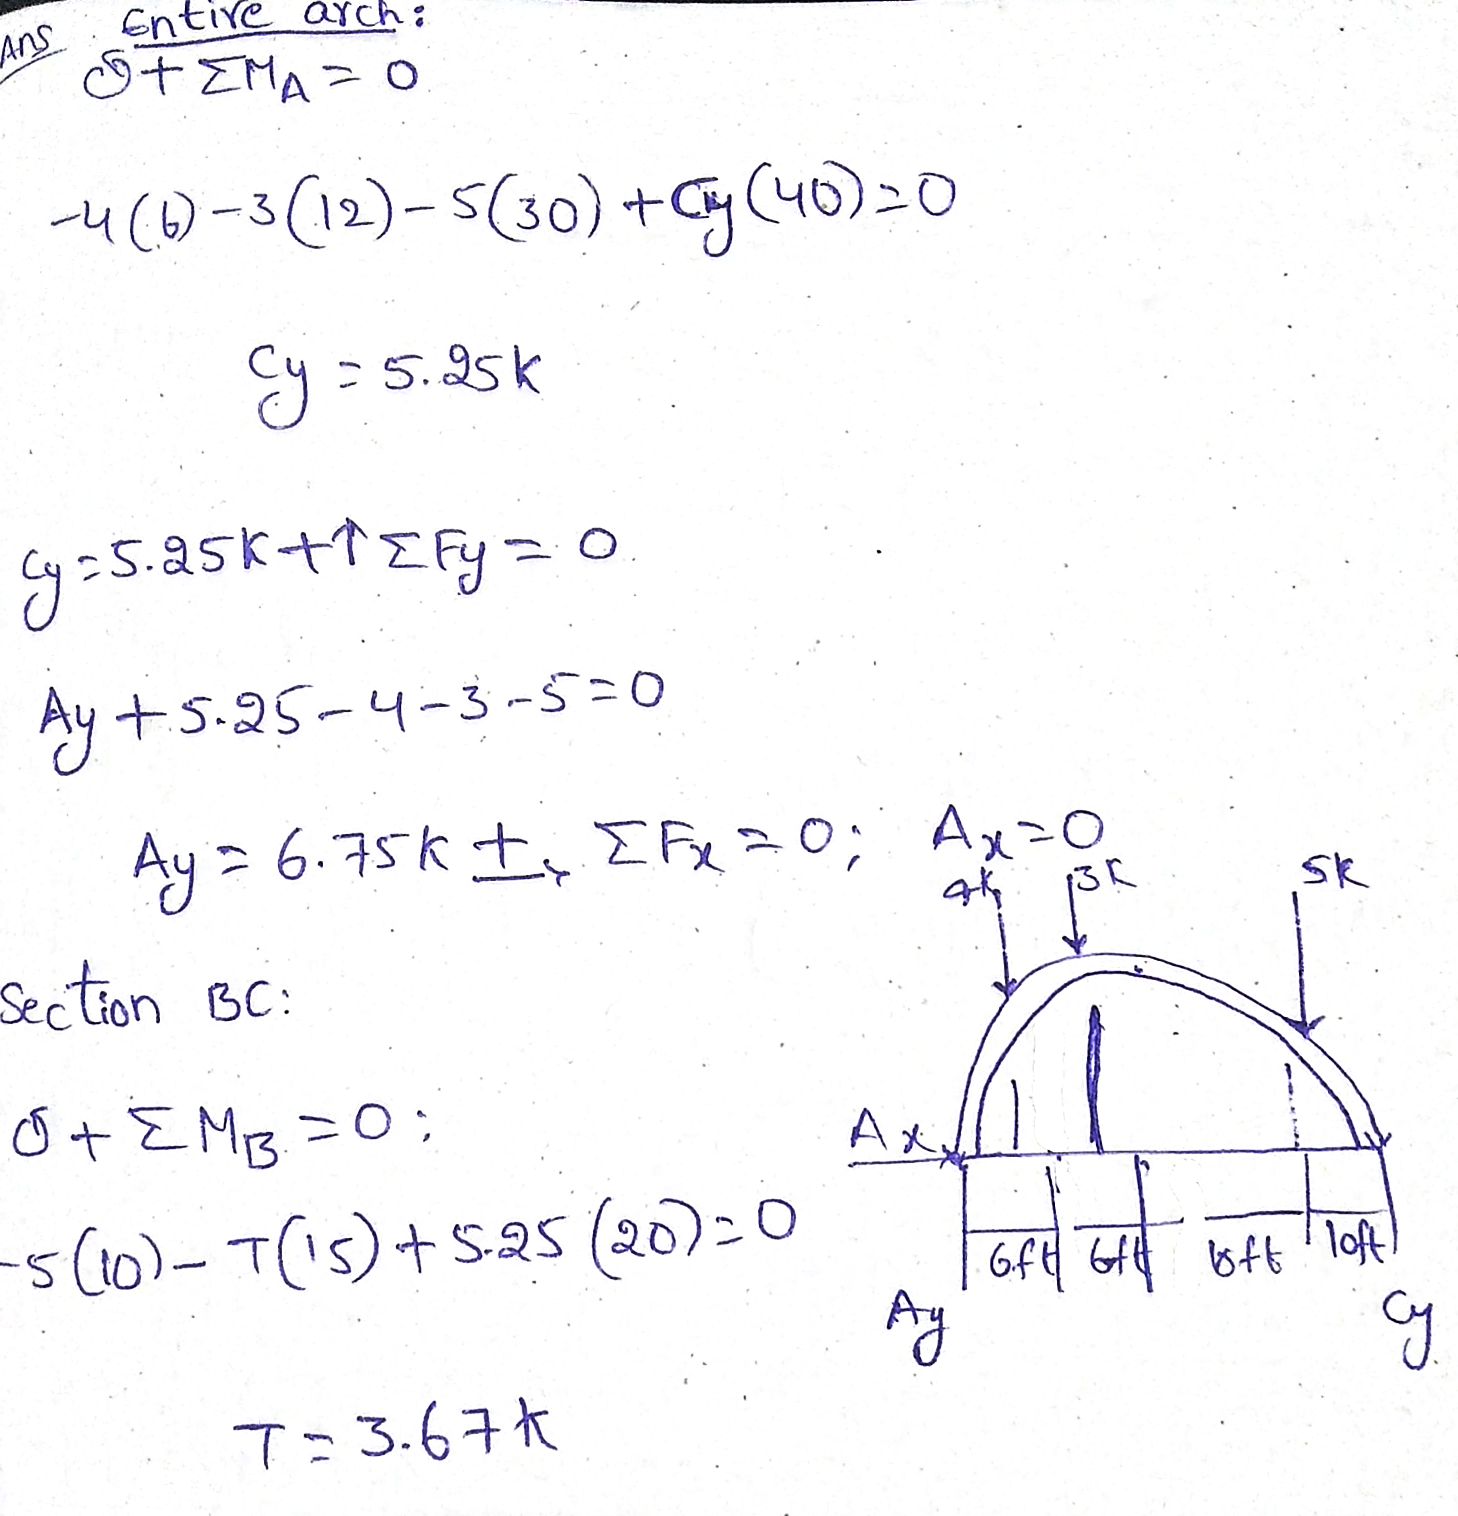 Ans Entire arch:
↺+ ΣMA = 0
-4(6)-3(12)-5(30)+Cy(40)=0
Cy = 5.25k
Cy=5.25k+↑ΣFy = 0
Ay + 5.25-4-3-5=0
Ay = 6.75k +→ ΣFx = 0; Ax=0
4k 3k 5k
Section BC:
↺+ ΣMB = 0:
Ax
-5(10)-T(15)+5.25(20)=0
6ft 6ft 10ft
Ay Cy
T = 3.67k